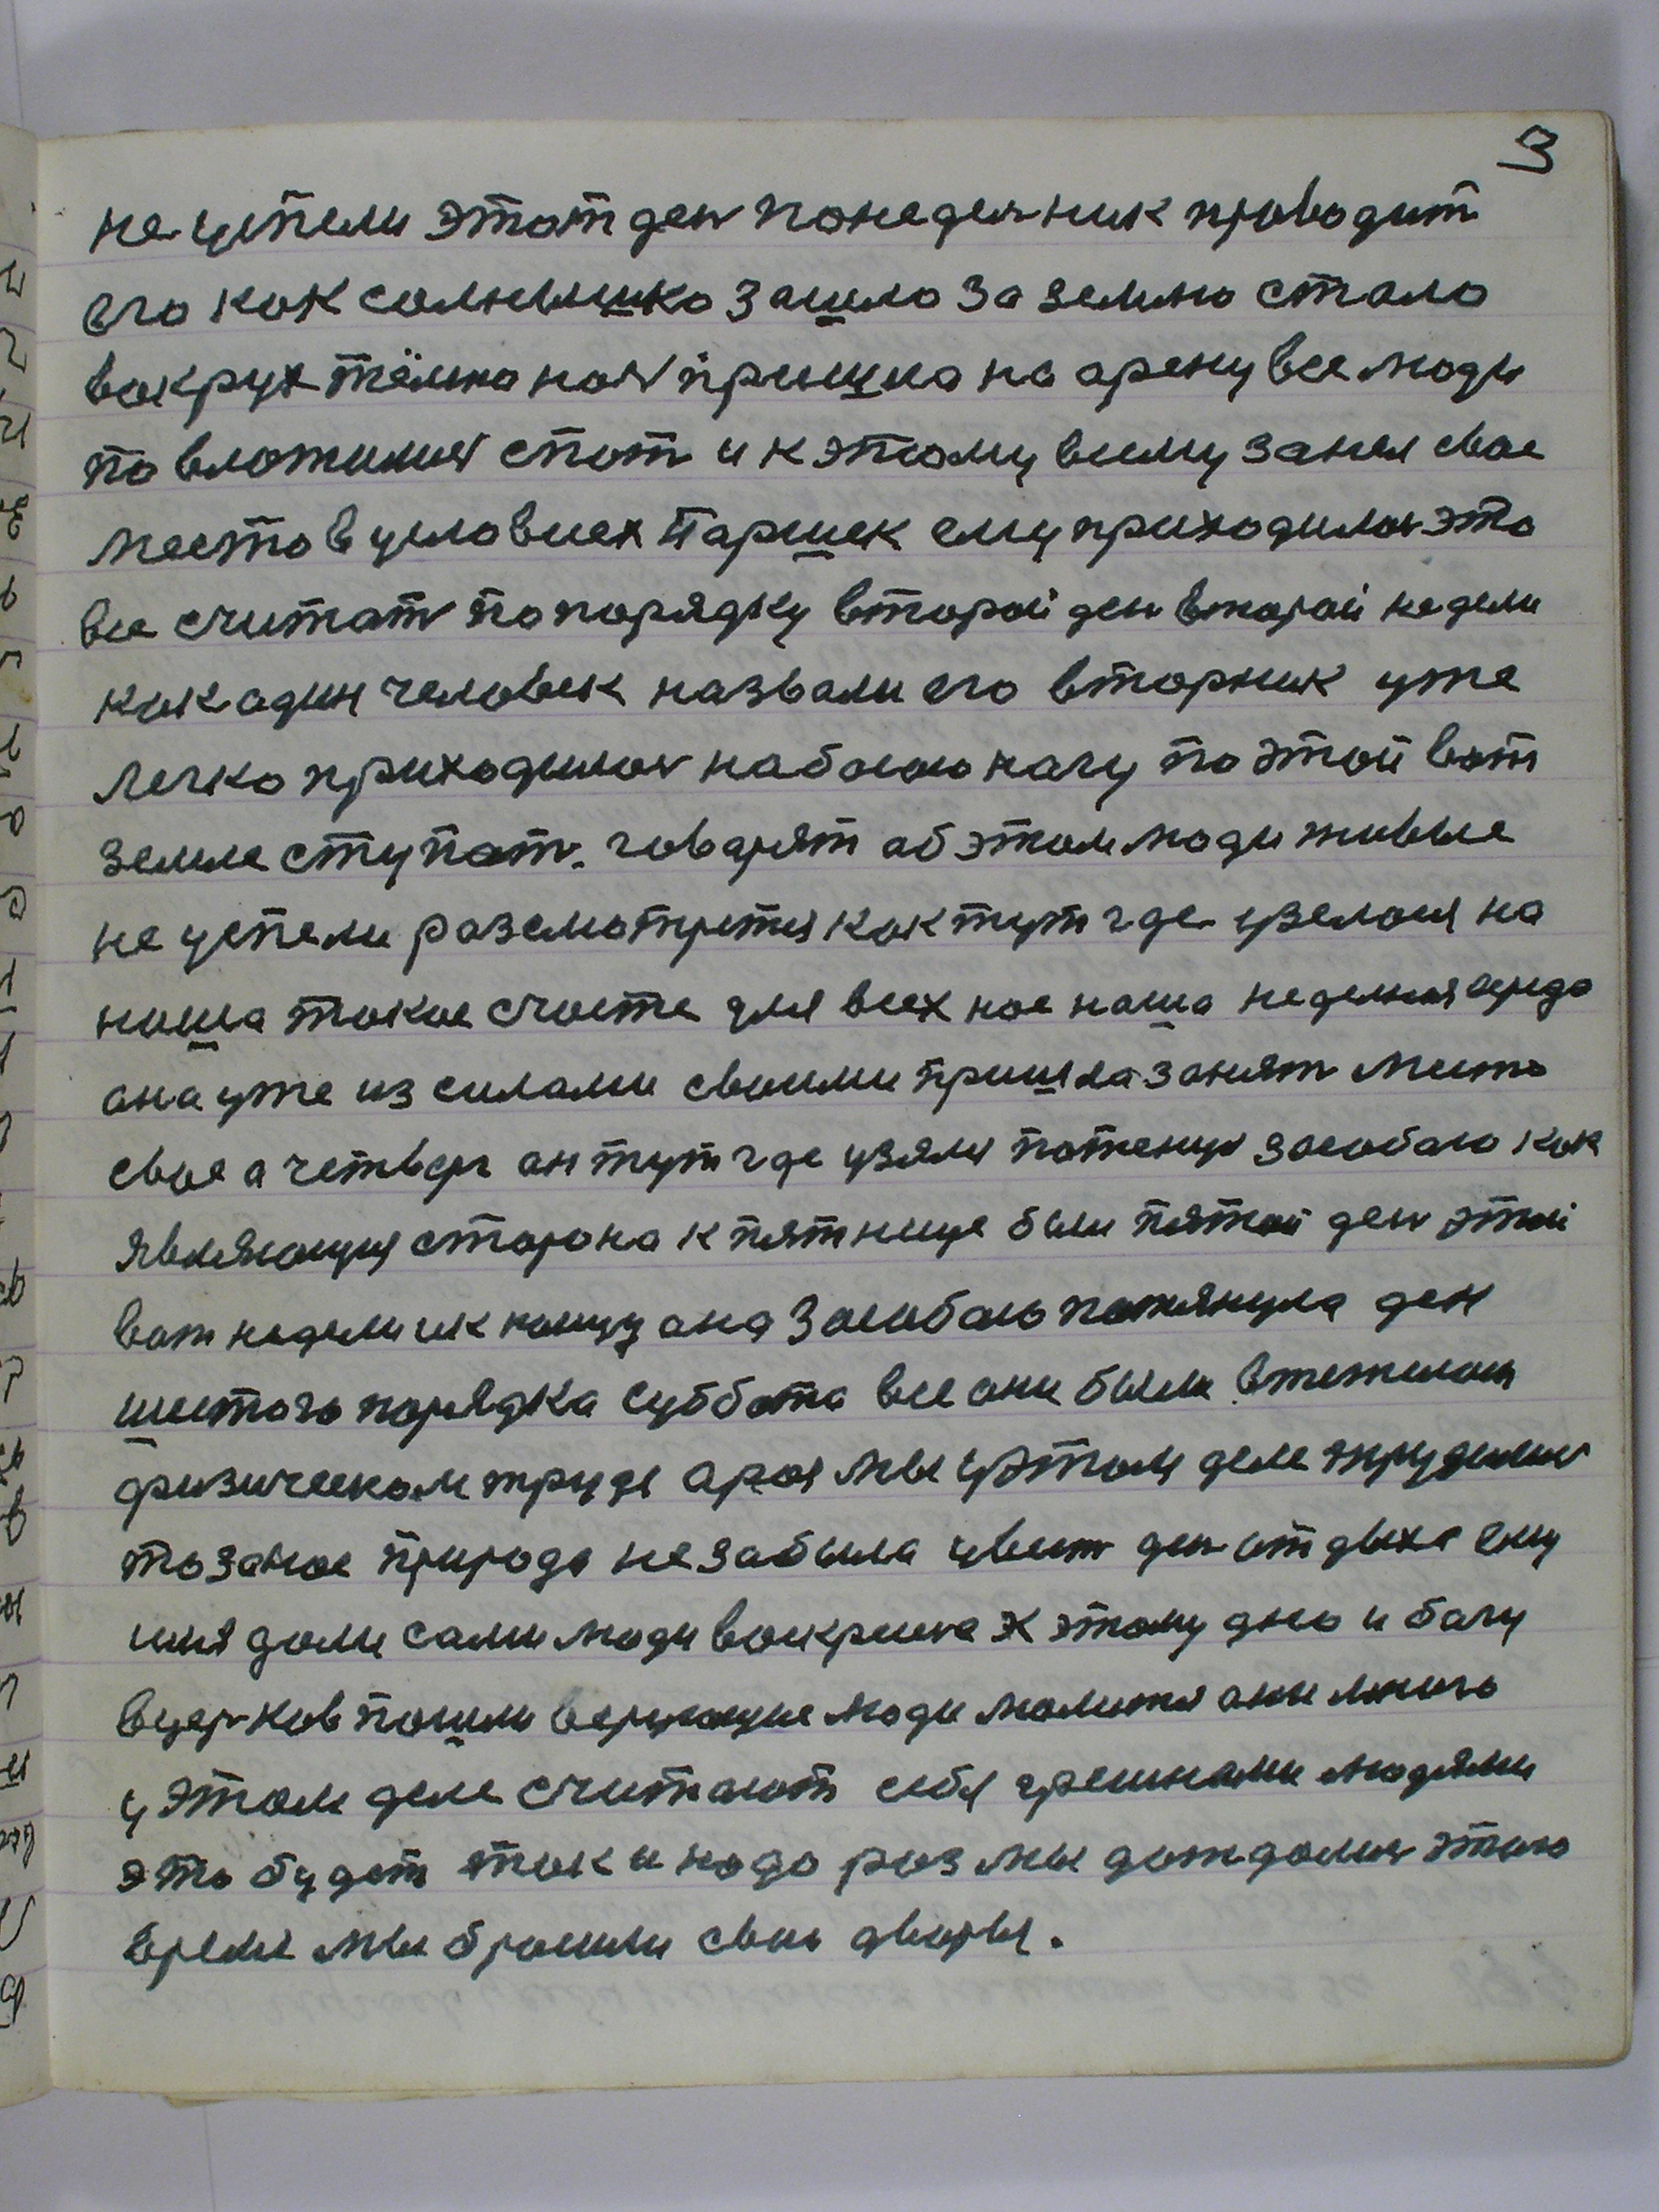 3
не успели этот ден понеделник проводит
его как солнышко зашло за землю стало
вокрух тёмно ноч пришла на арену все люди
по вложилис спат и к этому всиму занял свое
место в условиех Паршек ему приходилос это
все считат по порядку второй ден второй недели
как один человек назвали его вторник уже
легко приходилос на босою нагу по этой вот
земле ступат. говарят об этом люди живые
не успели расемотрется как тут где узелося на
наша такое счасте для всех нас наша неделния среда
она уже из силами своими пришла занят место
свое а четверг он тут где узялся потенул за собою как
являющуя сторона к пятнице был пятой ден этой
вот недели ик концу она за собою потянула ден
шистого порядка суббота все они были в тежолом
физическом труде а раз мы у этом деле трудилис
то за нас природа не забыла ден отдыха ему
имя дали сами люди воскриснея К этому дню и богу
в церков пошли верующие люди молится они много
у этом деле считают себя грешнами людями
это будет так и надо раз мы дождалис этого
время мы бросили свои дворы.